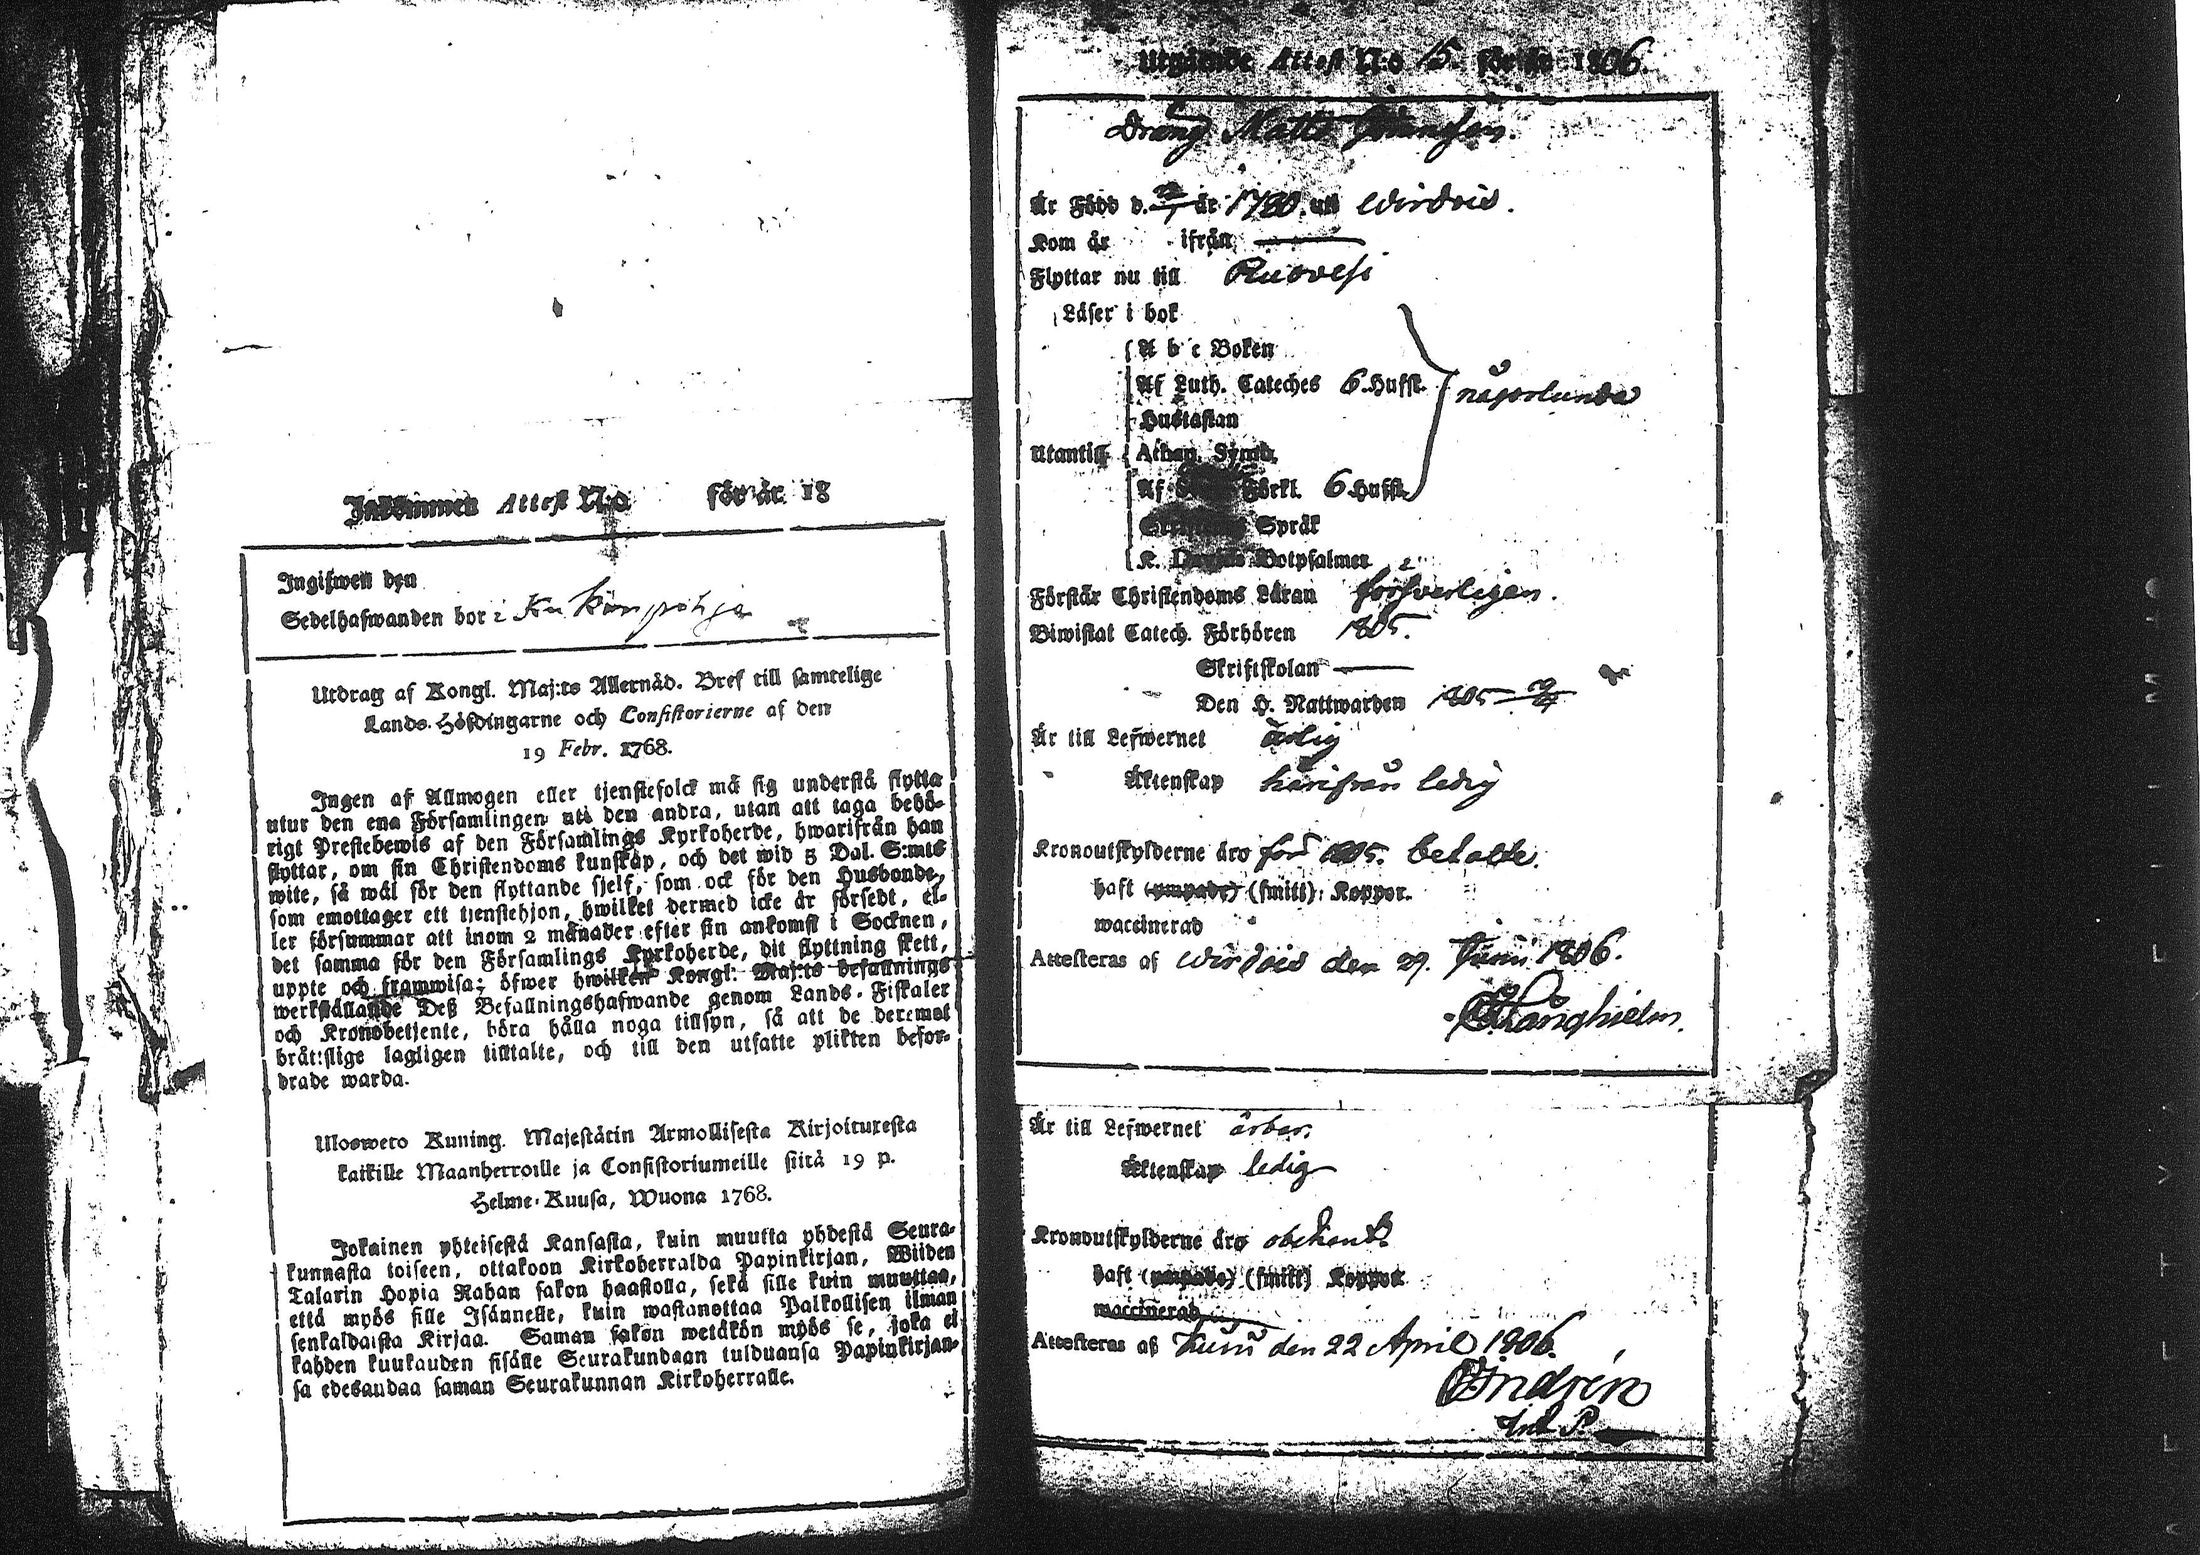 Inkommen Attest N:o för år 18
Ingifwen den
Sedelhafwanden bor i
Utdrag af Kongl. Maj:ts Allernåd. Bref till samtelige
Lands-Höfdingarne och Consistorierne af den
19 Febr. 1768.
Ingen af Allmogen eller tjenstefolck må sig understå flytta
utur den ena Församlingen uti den andra, utan att taga behö-
rigt Prestebewis af den Församlings Kyrkoherde, hwarifrån han
flyttar, om sin Christendoms kunskap, och det wid 5 Dal. S:mts
wite, så wäl för den flyttande sjelf, som ock för den Husbonde,
som emottager ett tjenstehjon, hwilket dermed icke är försedt, el-
ler försummar att inom 2 månader efter sin ankomst i Socknen,
det samma för den Församlings Kyrkoherde, dit flyttning skett,
uppte och framwisa; öfwer hwilken Kongl. Maj:ts befallnings
werkställande Deß Befallningshafwande genom Lands-Fiskaler
och Kronobetjente, böra hålla noga tillsyn, så att de deremot
bråttslige lagligen tilltalte, och till den utsatte plikten befor-
drade warda.
Ulosweto Kuning. Majestätin Armollisesta Kirjoituxesta
kaikille Maanherroille ja Consistoriumeille siitä 19 p.
Helme-Kuusa, Wuona 1768.
Jokainen yhteisestä Kansasta, kuin muutta yhdestä Seura-
kunnasta toiseen, ottakoon Kirkoherralda Papinkirjan, Wiiden
Talarin Hopia Rahan sakon haastolla, sekä sille kuin muuttaa,
että myös sille Isännelle, kuin wastanottaa Palkollisen ilman
senkaldaista Kirjaa. Saman sakon wetäkön myös se, joka ei
kahden kuukauden sisälle Seurakundaan tulduansa Papinkirjan-
sa edesandaa saman Seurakunnan Kirkoherralle.
Utgående Attest N:o 15. för år 1806.
Dräng Matts
Är Född d. år 1780. uti Wirdois.
Kom år ifrån
Flyttar nu till Ruovesi
Läser i bok
A b c Boken
Af Luth. Cateches 6 Hufst. någorlunda
Hustaflan
Utantill Athan. Symb.
Af Förkl. 6 Hufst.
Språk
K. Botpsalmer
Förstår Christendoms Läran försvarligen.
Biwistat Catech. Förhören 1805.
Skriftskolan
Den H. Nattwarden 1805
Är till Lefwernet ärlig
Äktenskap härifrån ledig
Kronoutskylderne äro för 1805. betalte.
haft (ympade) (smitt) Koppor.
waccinerad
Attesteras af Wirdois den 29. Junii 1806.
Är till Lefwernet ärbar.
Äktenskap ledig
Kronoutskylderne äro obekant
haft (ympade) (smitt) Koppor
waccinerad
Attesteras af Kuru den 22 April 1806.